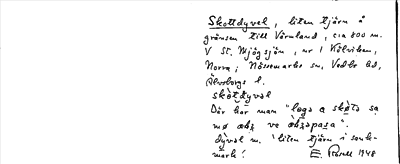 Skottdyvel, liten tjärn å
gränsen till Värmland, c:a 800 m.
V St. Mjögsjön, nr 1 Kölviken,
Norra; Nössemarks sn, Vedbo hd,
Älvsborgs l.
skòtdyvəl
Där har man "loga
mø
dyvel m. 'liten tjärn i sank-
mark'. E. Rosell 1948